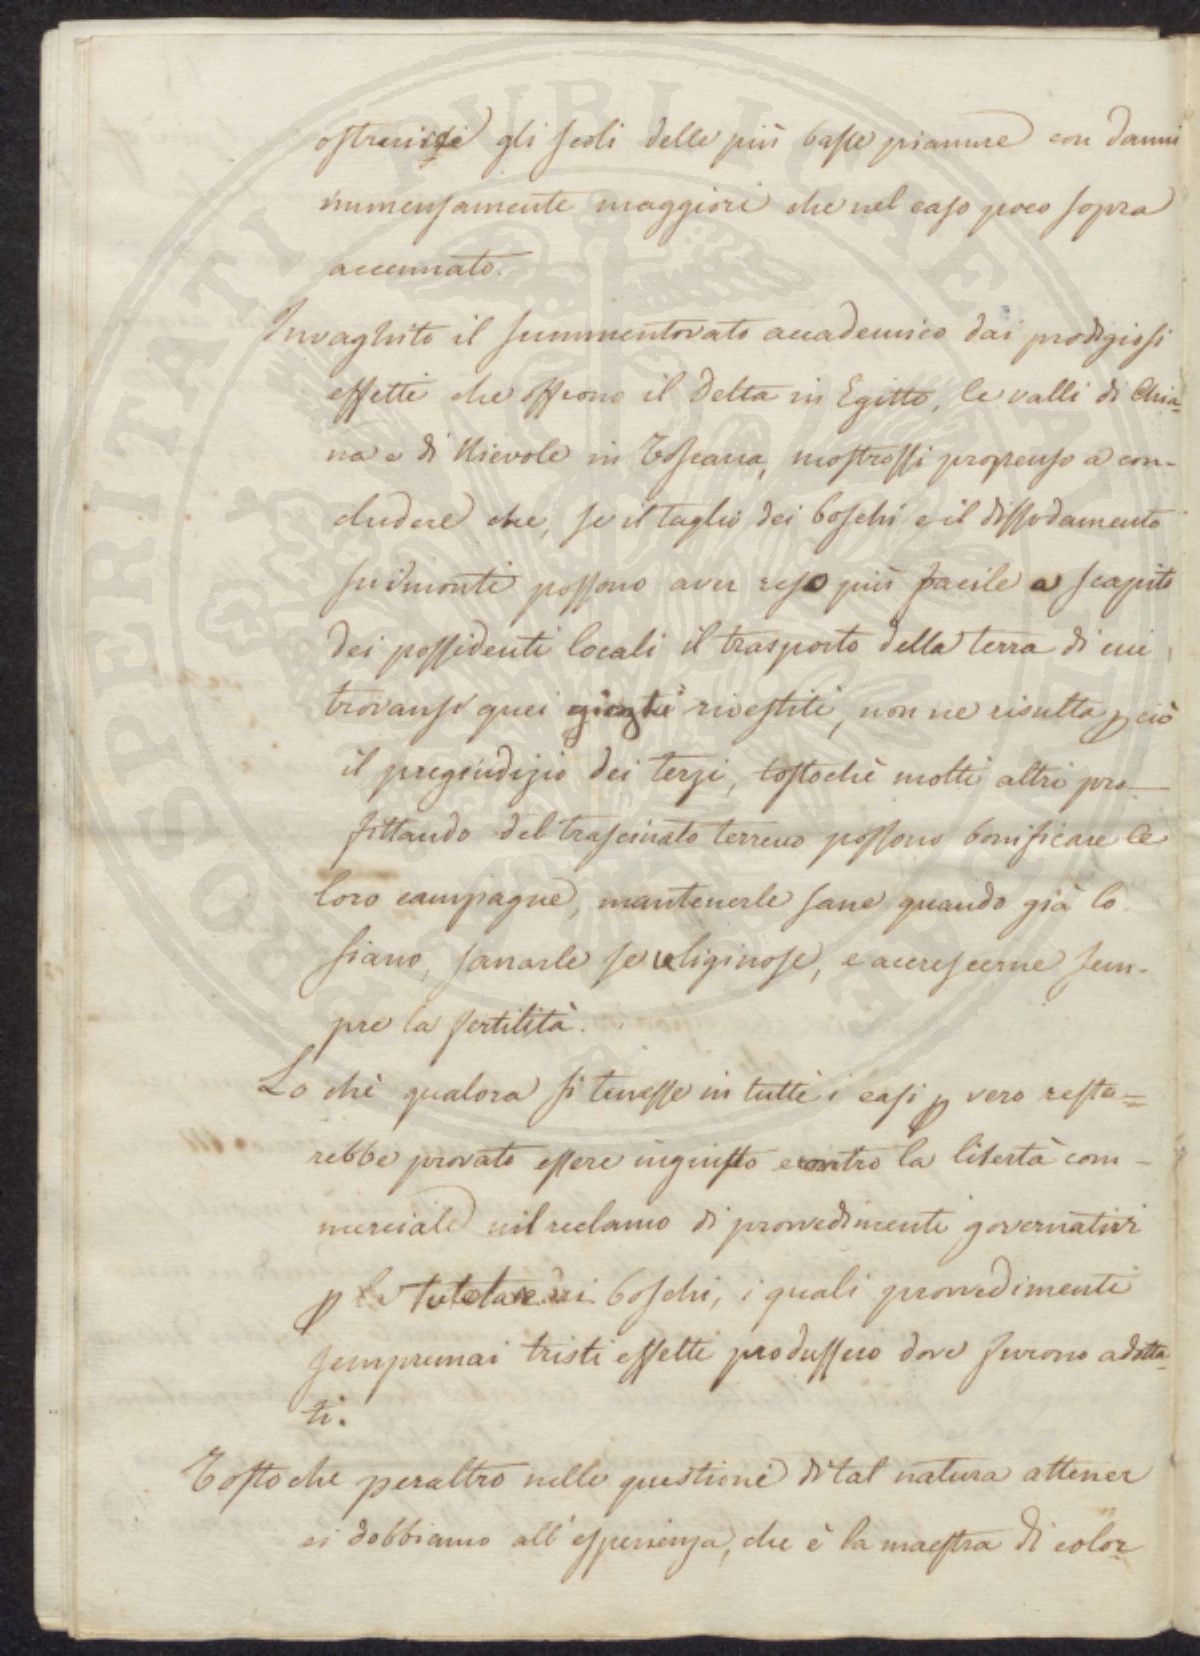 ostruirsi gli scoli delle più basse pianure con danni
immensamente maggiori che nel caso poco sopra
accennato.
Invaghito il summentovato accademico dai prodigiosi
effetti che offrono il Delta in Egitto, le valli di Chia-
na e di Nievole in Toscana, mostrossi propenso a con-
cludere che, se il taglio dei boschi e il dissodamento
sui monti possono aver reso più facile a scapito
dei possidenti locali il trasporto della terra di cui
trovansi quei gioghi rivestiti, non ne risulta p ciò
il pregiudizio dei terzi, tostochè molti altri pro-
fittando del trascinato terreno possono bonificare le
loro campagne, mantenerle sane quando già lo
siano, sanarle se uliginose, e accrescerne sem-
pre la fertilità.
Lo chè qualora si tenesse in tutti i casi p vero resta=
rebbe provato essere ingiusto e contro la libertà com-
merciale il reclamo di provvedimenti governativi
p tutelare i boschi, i quali provvedimenti
sempremai tristi effetti produssero dove furono adotta-
ti.
Tosto che peraltro nelle questioni di tal natura attener
ci dobbiamo all'esperienza, che è la maestra di color
PROSPERITATI PUBLICAE AUGENDAE